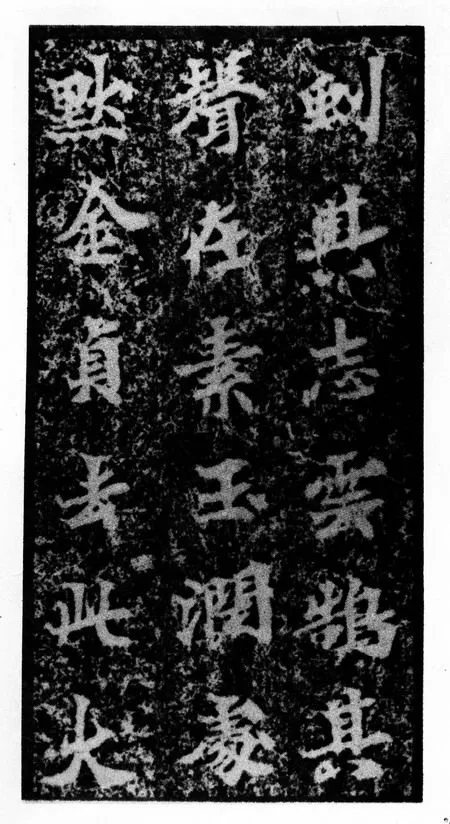 虯其志雲鵠其
聲在素玉潤處
默金貞去此火